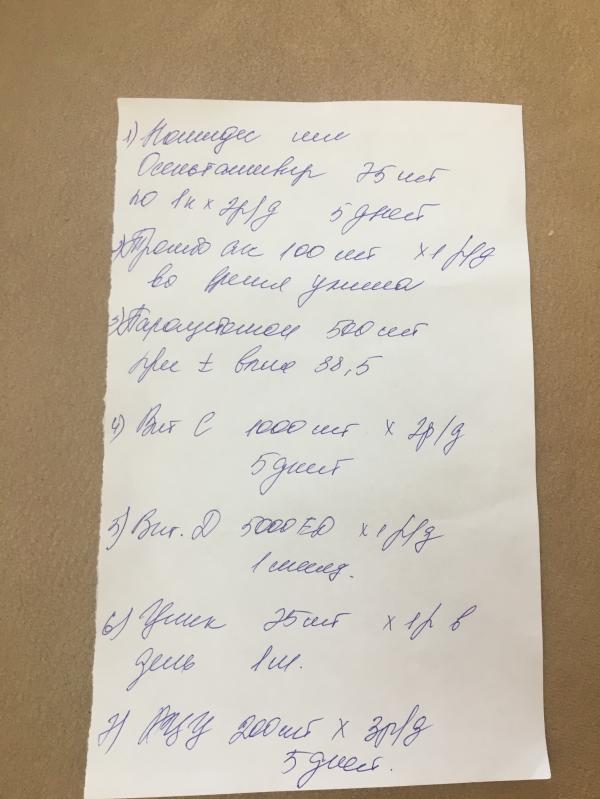 1) Номидес или
Осельтамивир 75 мг
по 1к × 2р/д 5 дней
2) Тромбо асс 100 мг × 1 р/д
во время ужина
3) Парацетамол 500 мг
при t выше 38,5
4) Вит С 1000 мг × 2р/д
5 дней
5) Вит. Д 5000 ЕД × 1 р/д
1 месяц.
6) Цинк 25 мг × 1р в
день 1 м.
7) АЦЦ 200 мг × 3р/д
5 дней.